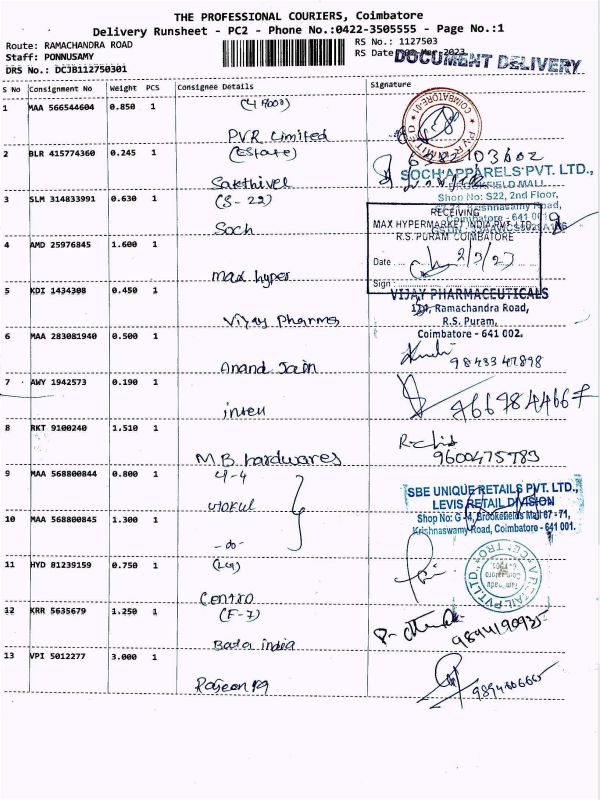 THE PROFESSIONAL COURIERS, Coimbatore
Delivery Runsheet - PC2 - Phone No.:0422-3505555 - Page No.:1
Route: RAMACHANDRA ROAD
RS No.: 1127503
Staff: PONNUSAMY
RS Date: 02-Mar-2023
DOCUMENT DELIVERY
DRS No.: DCJB112750301
S No Consignment No Weight PCS Consignee Details Signature
1 MAA 566544604 0.850 1
PVR Limited
2 BLR 415774360 0.245 1 (Estate)
Sakthivel
SOCH APPARELS PVT. LTD.,
BROOKFIELD MALL
Shop No: S22, 2nd Floor,
Krishnasamy Road,
Coimbatore - 641 001
3 SLM 314833991 0.630 1 (S-22)
Soch
RECEIVING
MAX HYPERMARKET INDIA PVT LTD
R.S. PURAM COIMBATORE
Date 2/3/23
Sign
4 AMD 25976845 1.600 1
max hyper
5 KDI 1434308 0.450 1
Vijay Pharma
VIJAY PHARMACEUTICALS
Ramachandra Road,
R.S. Puram,
Coimbatore - 641 002.
6 MAA 283081940 0.500 1
Anand Jain
9843347898
7 AWY 1942573 0.190 1
8 RKT 9100240 1.510 1
M.B hardwares
9 MAA 568800844 0.800 1 4-4
SBE UNIQUE RETAILS PVT. LTD.,
LEVIS RETAIL DIVISION
Shop No: G -4, Brookefields Mall 67 - 71,
Krishnaswamy Road, Coimbatore - 641 001.
10 MAA 568800845 1.300 1
-do-
11 HYD 81239159 0.750 1
Centro
12 KRR 5635679 1.250 1 (F-7)
Bata india
9894190935
13 VPI 5012277 3.000 1